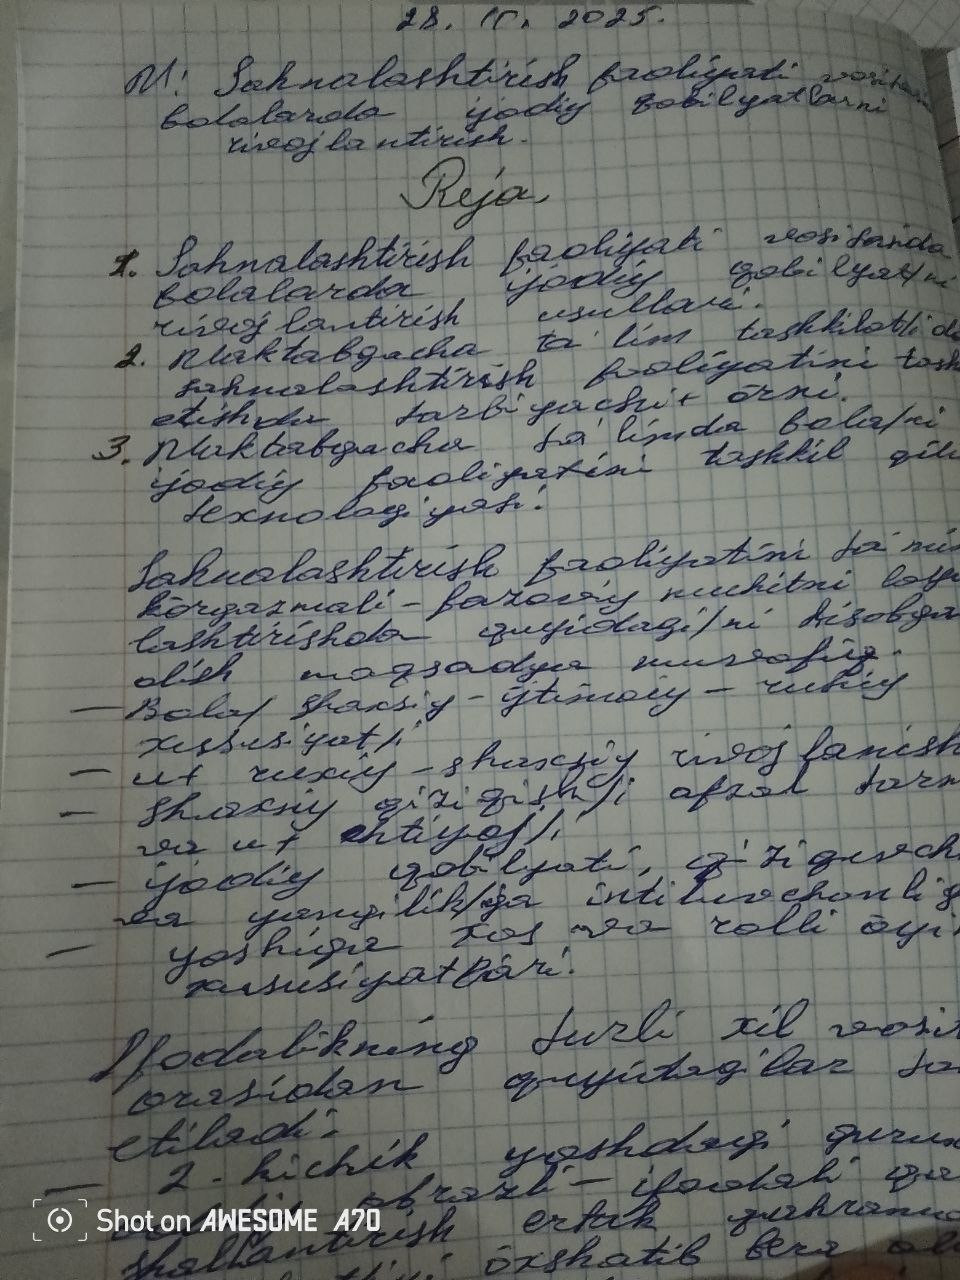 28. IV. 2025.
M: Sahnalashtirish faoliyati
bolalarda ijodiy qobilyatlarni
rivojlantirish.
Reja.
1. Sahnalashtirish faoliyati vositasida
bolalarda ijodiy qobilyat/ni
rivojlantirish usullari.
2. Maktabgacha ta'lim tashkiloti/da
sahnalashtirish faoliyatini tash
etishda tarbiyachi+ örni.
3. Maktabgacha ta'limda bola/ni
ijodiy faoliyatini tashkil qili
texnologiyasi.
Sahnalashtirish faoliyatini ta'min
körgazmali - fazoviy muhitni loyi
lashtirishda quyidagi/ni hisobga
olish maqsadga muvofiq.
— Bola/ shaxsiy - ijtimoiy - ruhiy
xususiyat/i
— u+ ruxiy - shaxsiy rivojlanish
— shaxsiy qiziqish/i afzal
va u+ ehtiyoj/i
— ijodiy qobilyati, qiziquvch
va yangilik/ga intiluvchanlig
— yoshiga xos va rolli öyi
xususiyatlari.
Ifodalikning turli xil vosit
orasidan quyidagilar ta
etiladi:
— 2-kichik yoshdagi guru
obrazli - ifodali
shakllantirish ertak qahramo
öxshatib bera
Shot on AWESOME A70